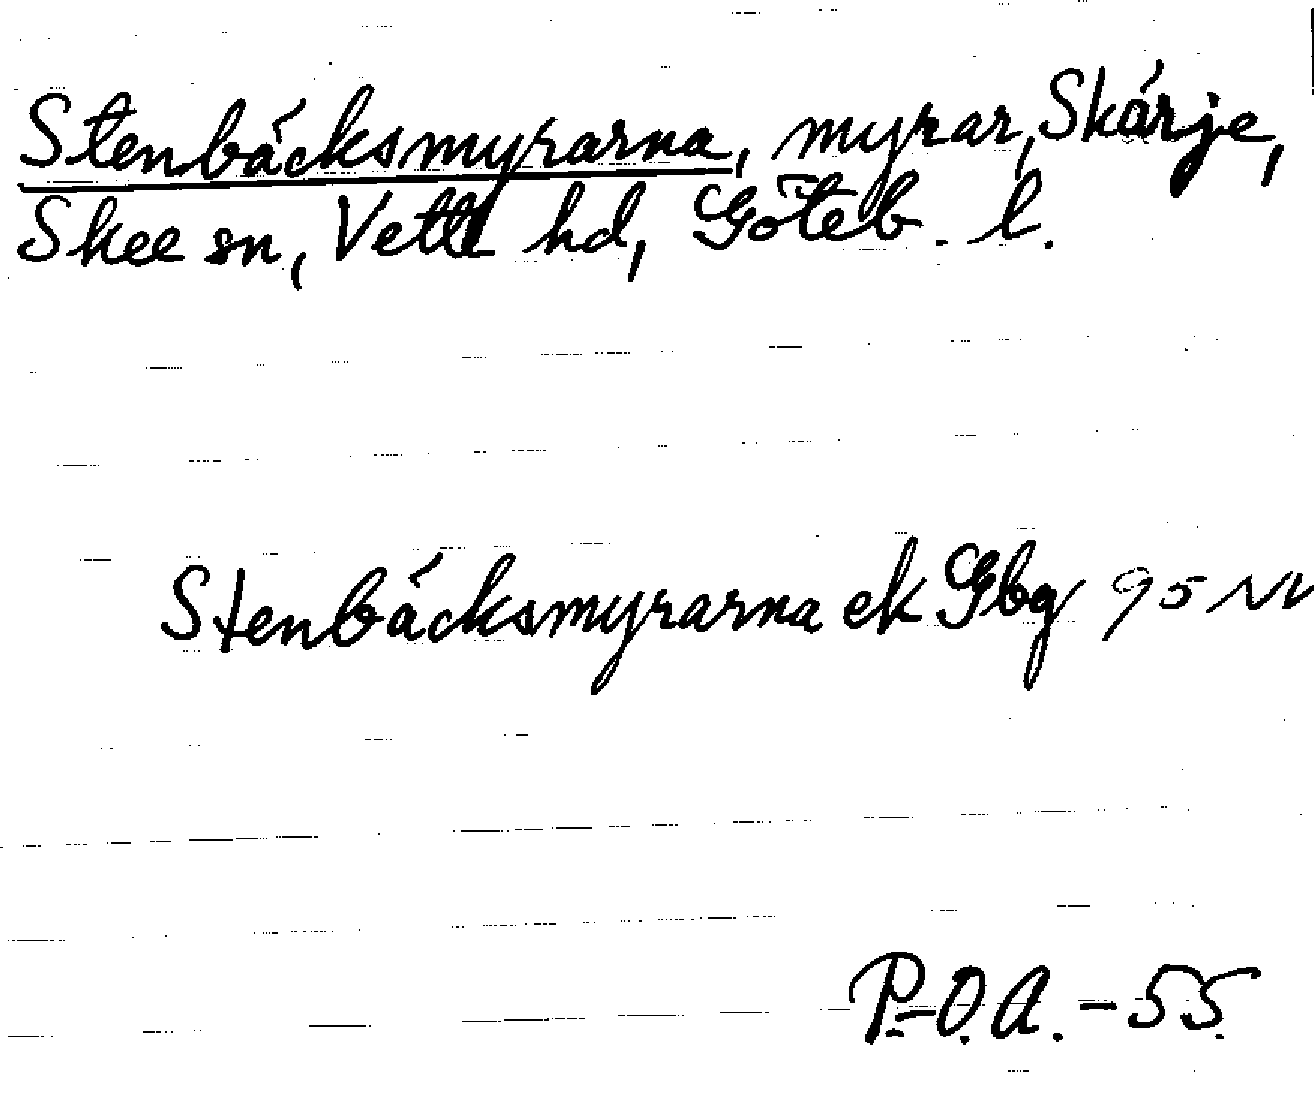 Stenbäcksmyrarna, myrar, Skärje,
Skee sn, Vette hd, Göteb. l.
Stenbäcksmyrarna ek Gbg 95 NV
P-O.A. -55.